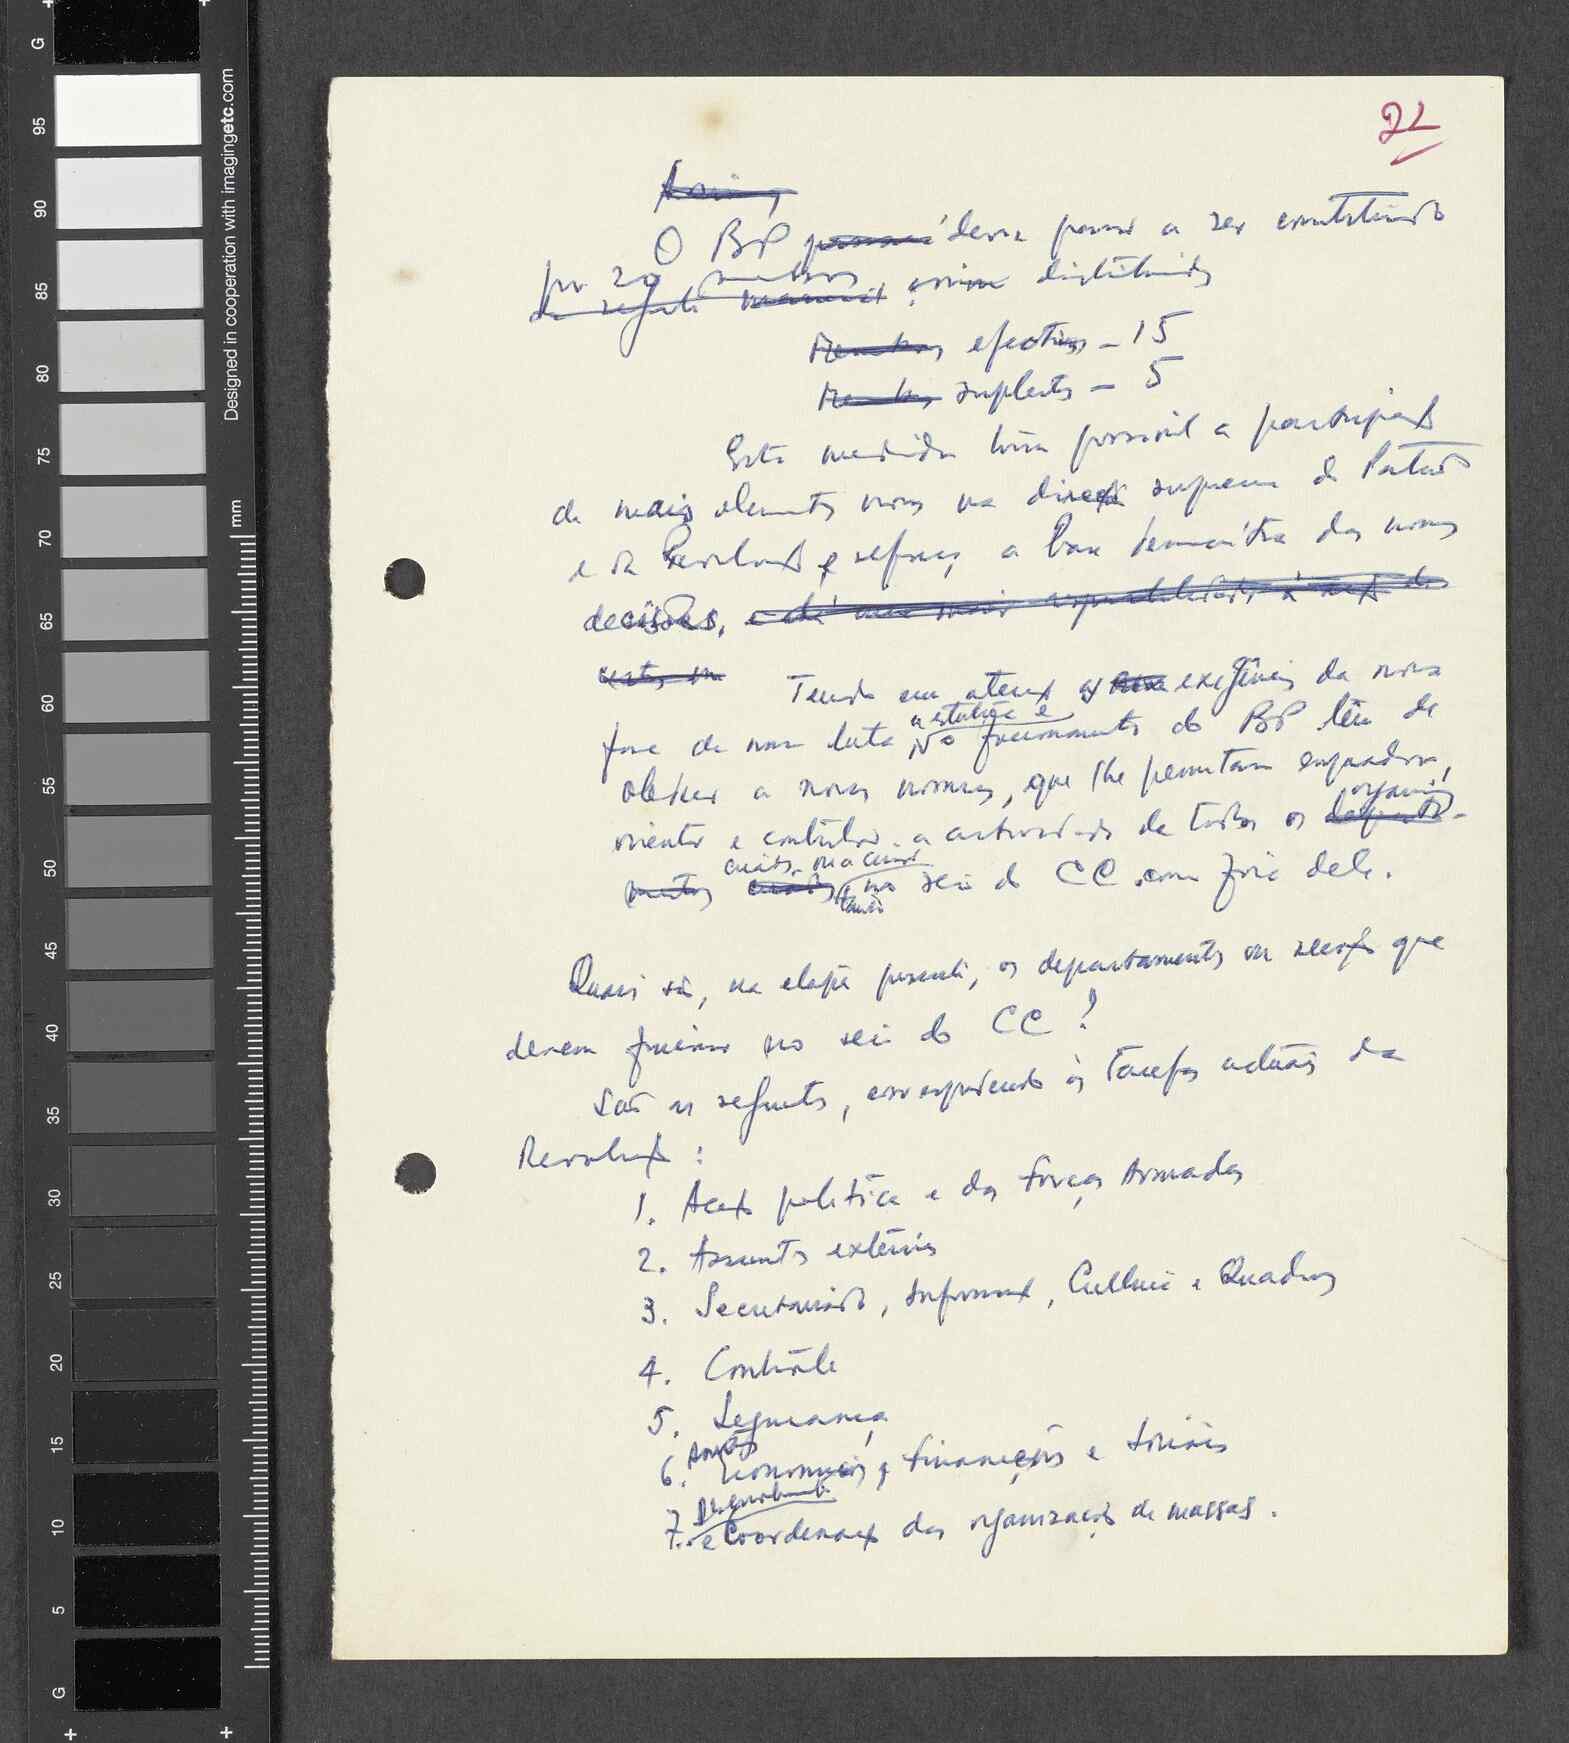 G
95
90
85
80
75
70
65
60
55
50
45
40
35
30
25
20
15
10
5
G
Designed in cooperation with imagingetc.com
mm
O BP deve passar a ser constituido
por 20 membros, assim distribuidos
Membros efectivos - 15
Membros suplentes - 5
Esta medida torna possivel a participação
de mais elementos novos na direcção suprema do Partido
e da Revolução e reforça a base democrática das nossas
decisões,
Tendo em atenção as exigências da nova
fase da nossa luta, a estrutura e o funcionamento do BP têm de
obedecer a novas normas, que lhe permitam enquadrar,
orientar e controlar a actividade de todos os organismos
criados ou a criar tanto no seio do CC como fora dele.
Quais são, na etapa presente, os departamentos ou secções que
devem funcionar no seio do CC?
São os seguintes, correspondendo às tarefas actuais da
Revolução:
1. Acção política e das Forças Armadas
2. Assuntos extériores
3. Secretariado, Informação, Cultura e Quadros
4. Contrôle
5. Segurança
6. Assuntos Economicos, Financeiros e Sociais
7. Desenvolvimento
e Coordenação das organizações de massas.